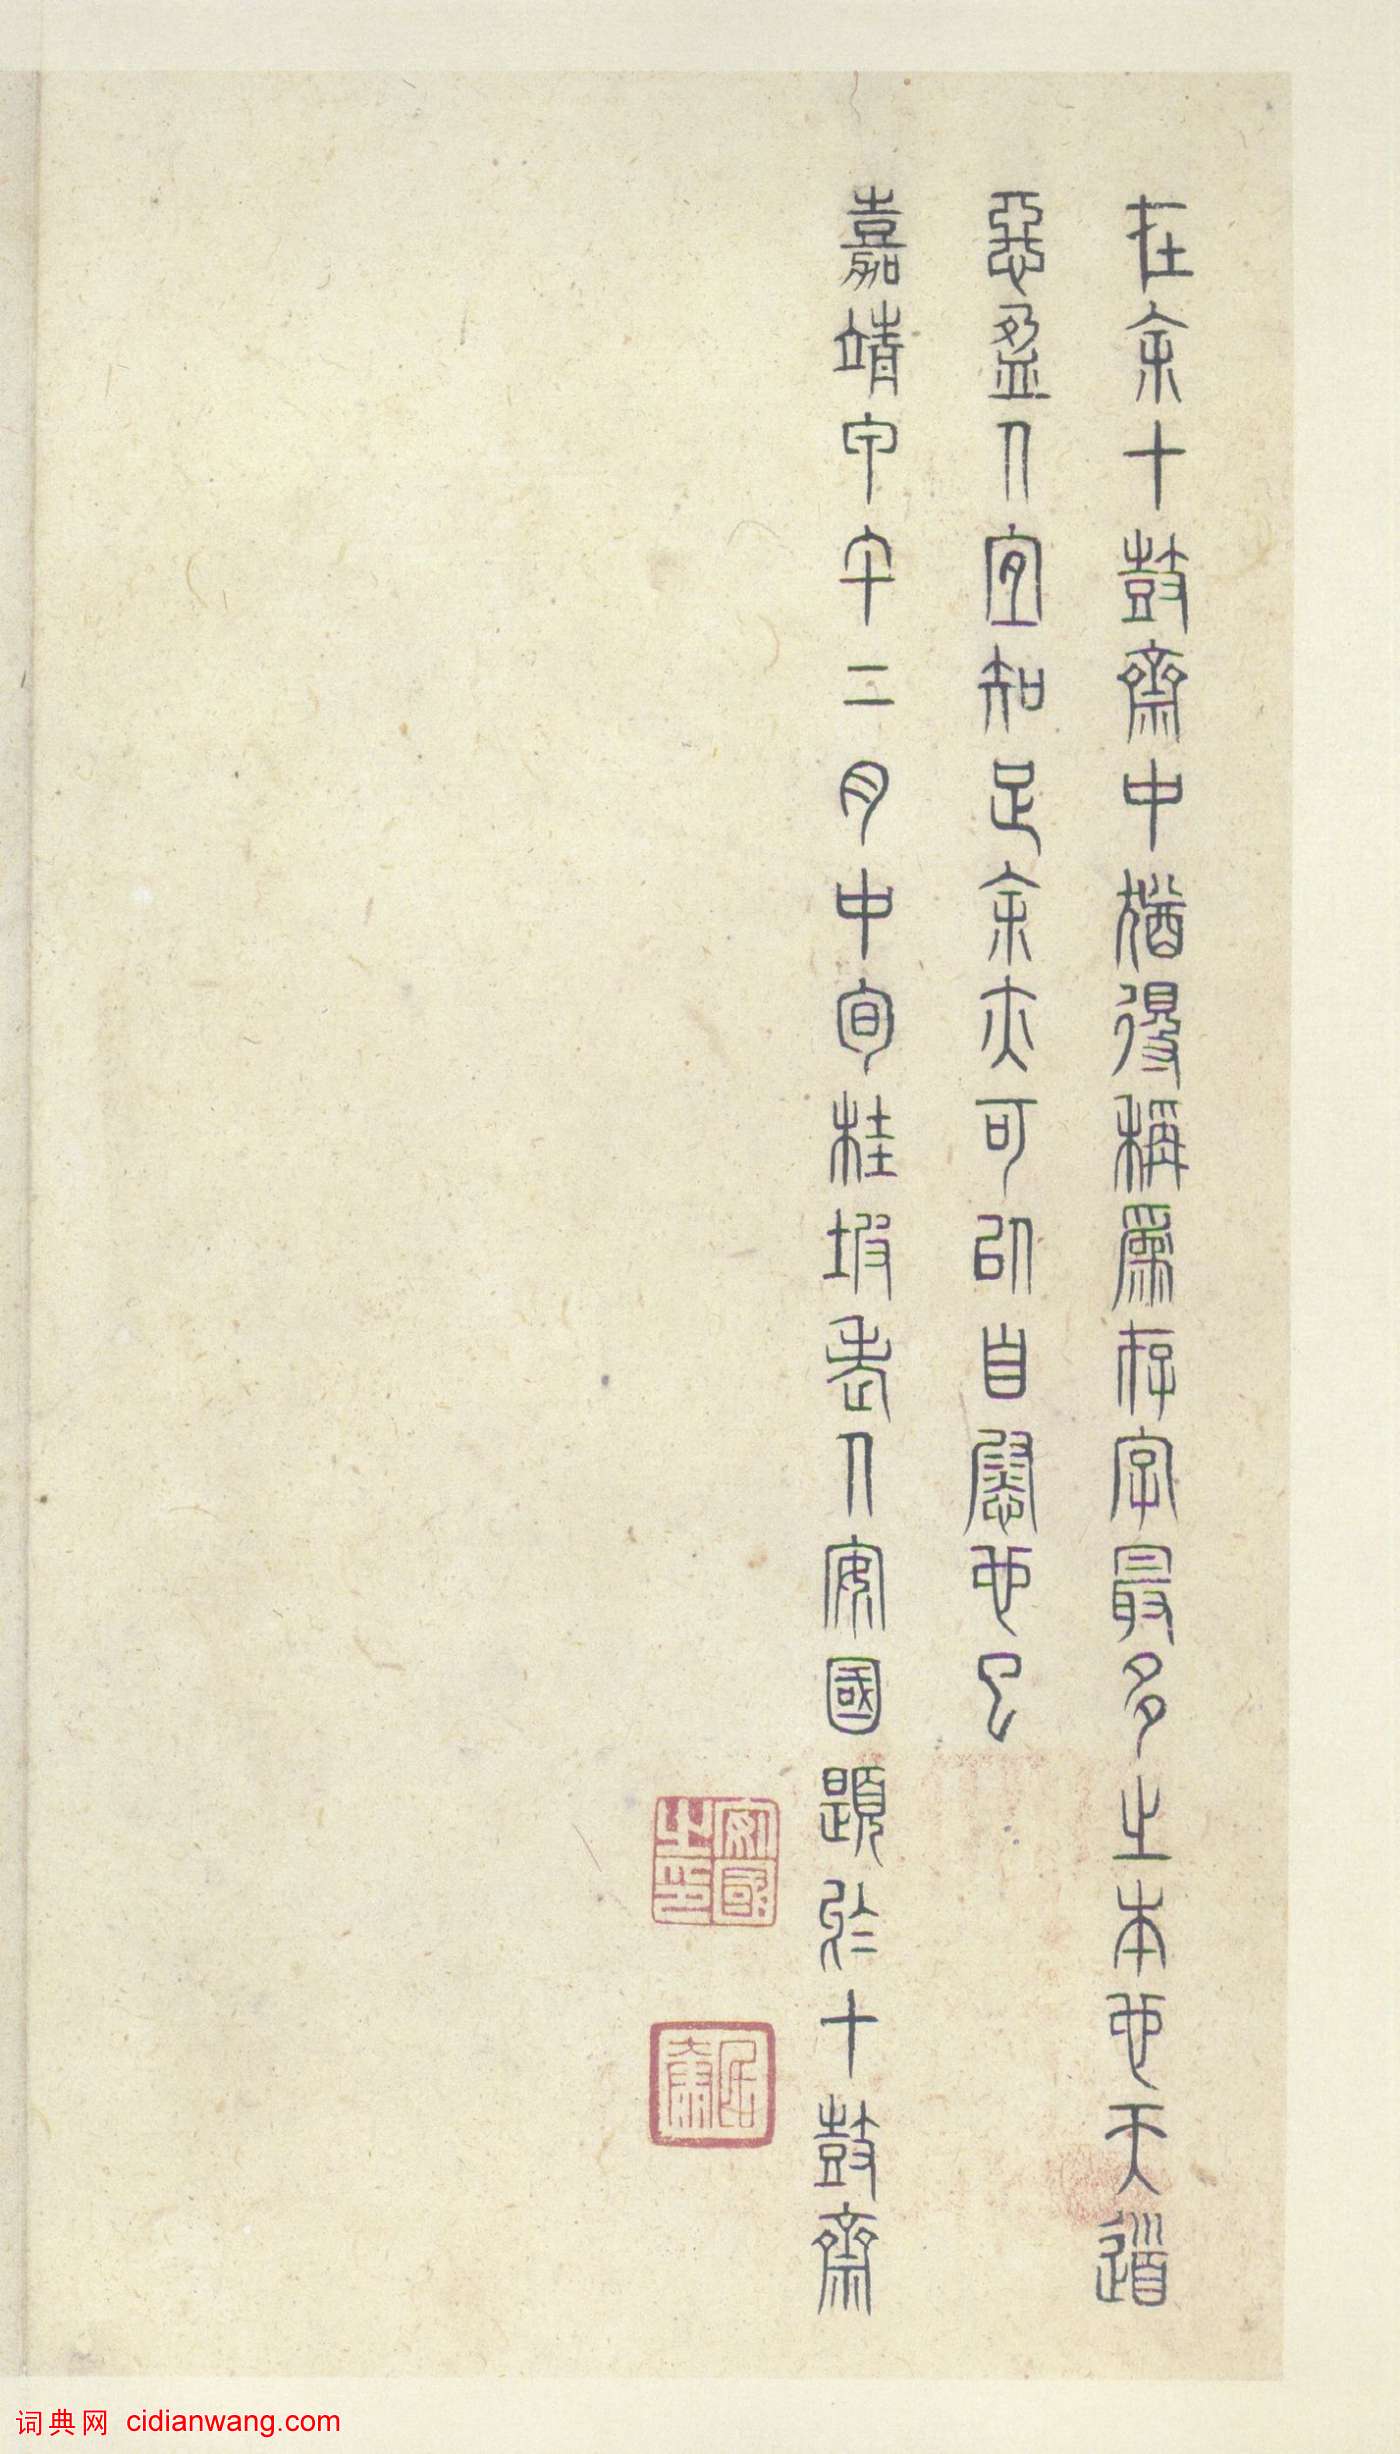 在余十鼓齋中猶得稱爲存字最多之本也天道
惡盈人宜知足余亦可以自慰也已
嘉靖甲午二月中旬桂坡老人安國題於十鼓齋
安國之印
词典网 cidianwang.com